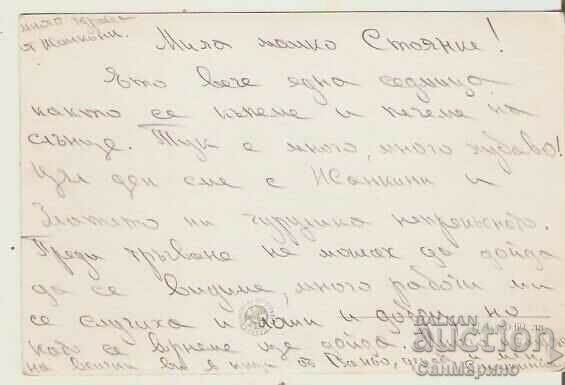 много здраве
от Жанкини.
Мила майко Стоянке!
Ето вече една седмица
както се къпеме и печеме на
слънце. Тук е много, много хубаво!
Цял ден сме с Жанкини и
Златето ни чурулика непрекъснато.
Преди тръгване не можах да дойда
да се видиме, много работи ми
се случиха и лоши и добри, но
като се върнем ще дойда.
на всички ви е от
БАЛКАН
auction
СанМарино